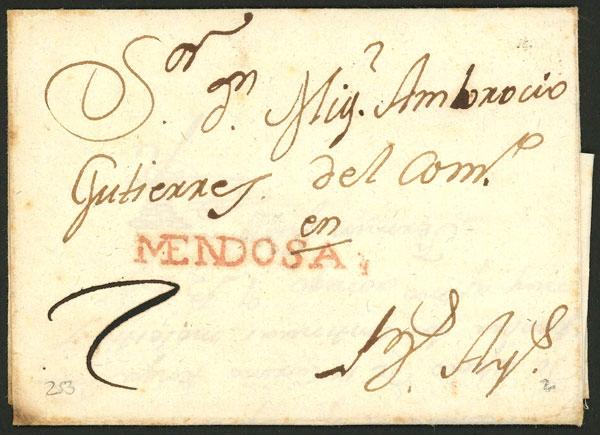 Sor. dn. Migl. Ambrocio
Gutierres. del Como.
en
MENDOSA
Bs. Ays.
2
253